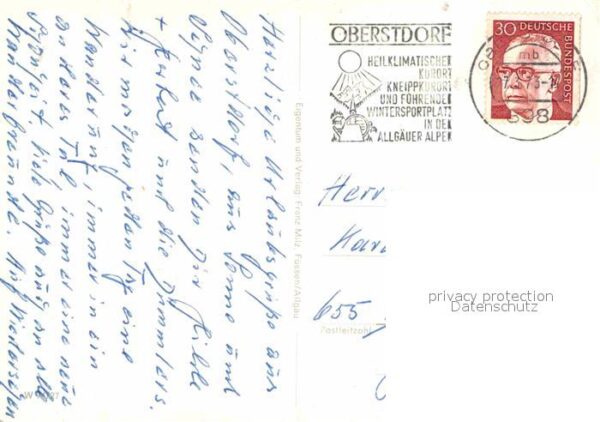 Herzliche Urlaubsgrüße aus
Oberstdorf, aus Sonne und
Sünne senden Dir Hilde
+ Herbert und die Dümmlers.
Wir mögen jeden Tag eine
Wanderung, immer in ein
anderes Tal immer eine neue
Schönheit. Viele Grüße auch an alle
Wanderfreunde. Auf Wiedersehen
W 9227
Eigentum und Verlag Franz Milz, Füssen/Allgäu
OBERSTDORF
HEILKLIMATISCHER
KURORT
KNEIPPKURORT
UND FÜHRENDER
WINTERSPORTPLATZ
IN DEN
ALLGÄUER ALPEN
30 DEUTSCHE
BUNDESPOST
mb
898
Herr
655
Postleitzahl
privacy protection
Datenschutz